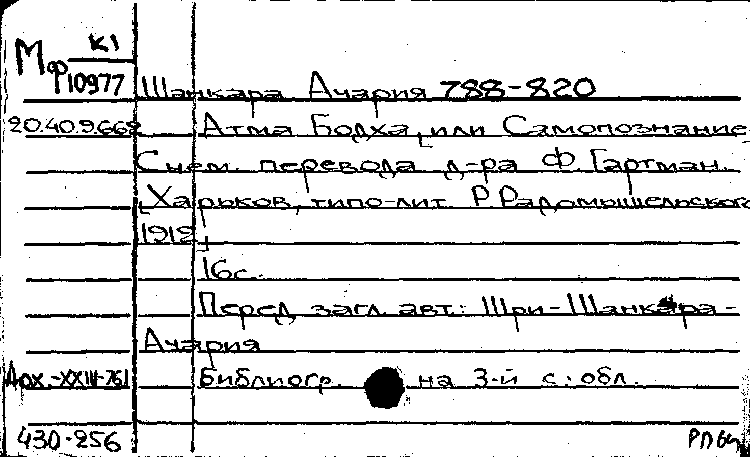 Мф К1
10977
Шанкара Ачария 788-820
20.40.9.662 Атма Бодха, или Самопознание
С нем. перевода д-ра Ф. Гартман.
[Харьков, типо-лит. Р. Радомышельского
1912]
16 с.
Перед загл. авт.: Шри-Шанкара-
Ачария
Арх.-XXIII-761 Библиогр. на 3-й с. обл.
430-256